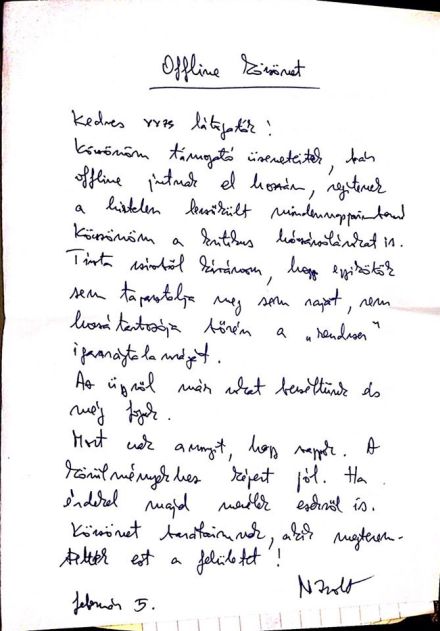 Offline Köszönet
Kedves vv75 látogatók!
Köszönöm támogató üzeneteitek, bár
offline jutnak el hozzám, segítenek
a hirtelen beszűkült mindennapjaimban
Köszönöm a kritikus hozzászólásokat is.
Tiszta szívből kívánom, hogy egyikőtök
sem tapasztalja meg sem saját, sem
hozzátartozója bőrén a „rendszer"
igazságtalanságát.
Az ügyről már sokat beszéltünk és
még fogok.
Most csak annyit, hogy vagyok. A
körülményekhez képest jól. Ha
érdekel majd mesélek ezekről is.
Köszönet barátaimnak, akik megterem-
tették ezt a felületet!
N Zsolt
február 5.